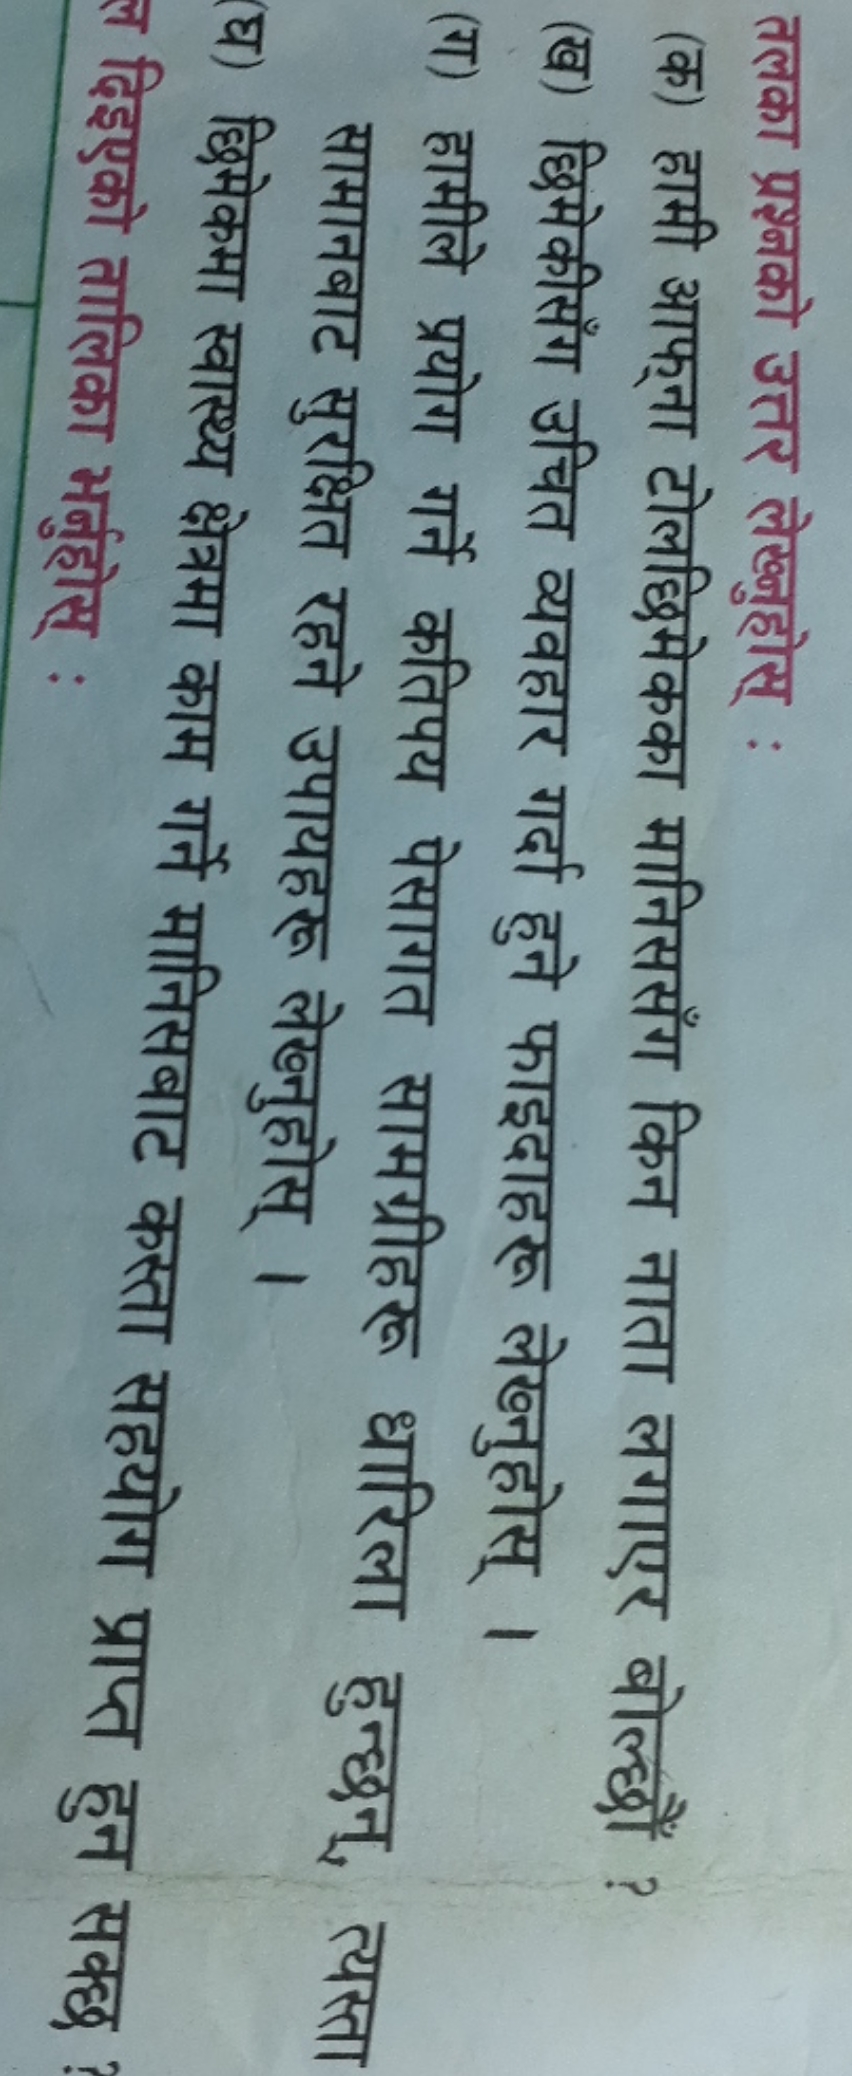 तलका प्रश्नको उत्तर लेख्नुहोस् :
(क) हामी आफ्ना टोलछिमेकका मानिससँग किन नाता लगाएर बोल्छौँ ?
(ख) छिमेकीसँग उचित व्यवहार गर्दा हुने फाइदाहरू लेख्नुहोस् ।
(ग) हामीले प्रयोग गर्ने कतिपय पेसागत सामग्रीहरू धारिला हुन्छन्, त्यस्ता
सामानबाट सुरक्षित रहने उपायहरू लेख्नुहोस् ।
(घ) छिमेकमा स्वास्थ्य क्षेत्रमा काम गर्ने मानिसबाट कस्ता सहयोग प्राप्त हुन सक्छ ?
ल दिइएको तालिका भर्नुहोस् :